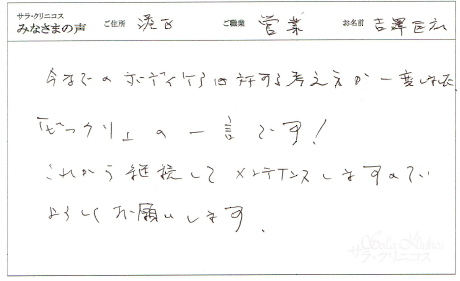 サラ・クリニコス
みなさまの声 ご住所 港区 ご職業 営業 お名前 吉澤 巨広
今までのボディケアに対する考え方が一変しました。
「ビックリ」の一言です!
これから継続してメンテナンスしますので
よろしくお願いします。
サラ・クリニコス